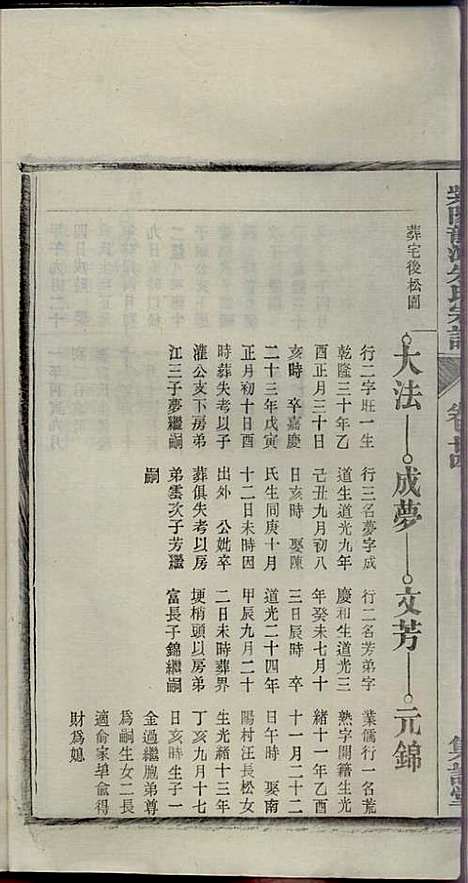 葬宅後松園
大法——成夢——文芳——元錦
行二字旺一生
乾隆三十年乙
酉正月三十日
亥時 卒嘉慶
二十三年戊寅
正月初十日酉
時葬失考以子
灌公支下房弟
江三子夢繼嗣
行三名夢字成
道生道光九年
己丑九月初八
日亥時 娶陳
氏生同庚十月
十二日未時因
出外 公妣卒
葬俱失考以房
弟雲次子芳繼
嗣
行二名芳弟字
慶和生道光三
年癸未七月十
三日辰時 卒
道光二十四年
甲辰九月二十
二日未時葬界
埂梢頭以房弟
富長子錦繼嗣
業儒行一名荒
熟字開籍生光
緒十一年乙酉
十一月二十二
日午時 娶南
陽村汪長松女
生光緒十三年
丁亥九月十七
日亥時生子一
金過繼胞弟尊
為嗣生女二長
適俞家畢僉得
財為媳